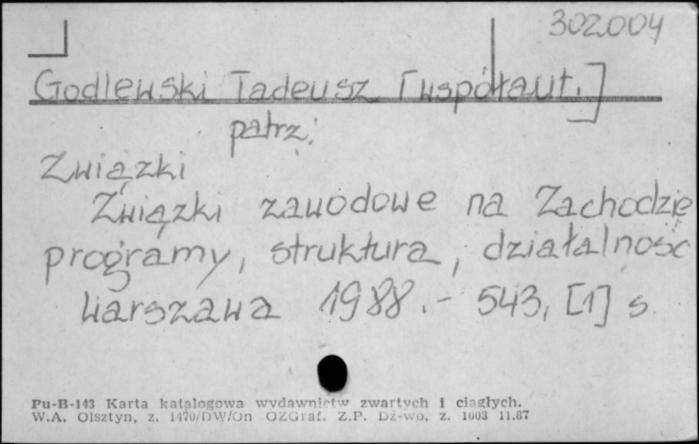 302004
Godlewski Tadeusz [współaut.]
patrz:
Związki
Związki zawodowe na Zachodzie
programy, struktura, działalność
Warszawa 1988.- 543, [1] s
Pu-B-143 Karta katalogowa wydawnictw zwartych i ciągłych.
W.A. Olsztyn, z. 1470/DW/On OZGraf. Z.P. Dź-wo, z. 1003 11.87